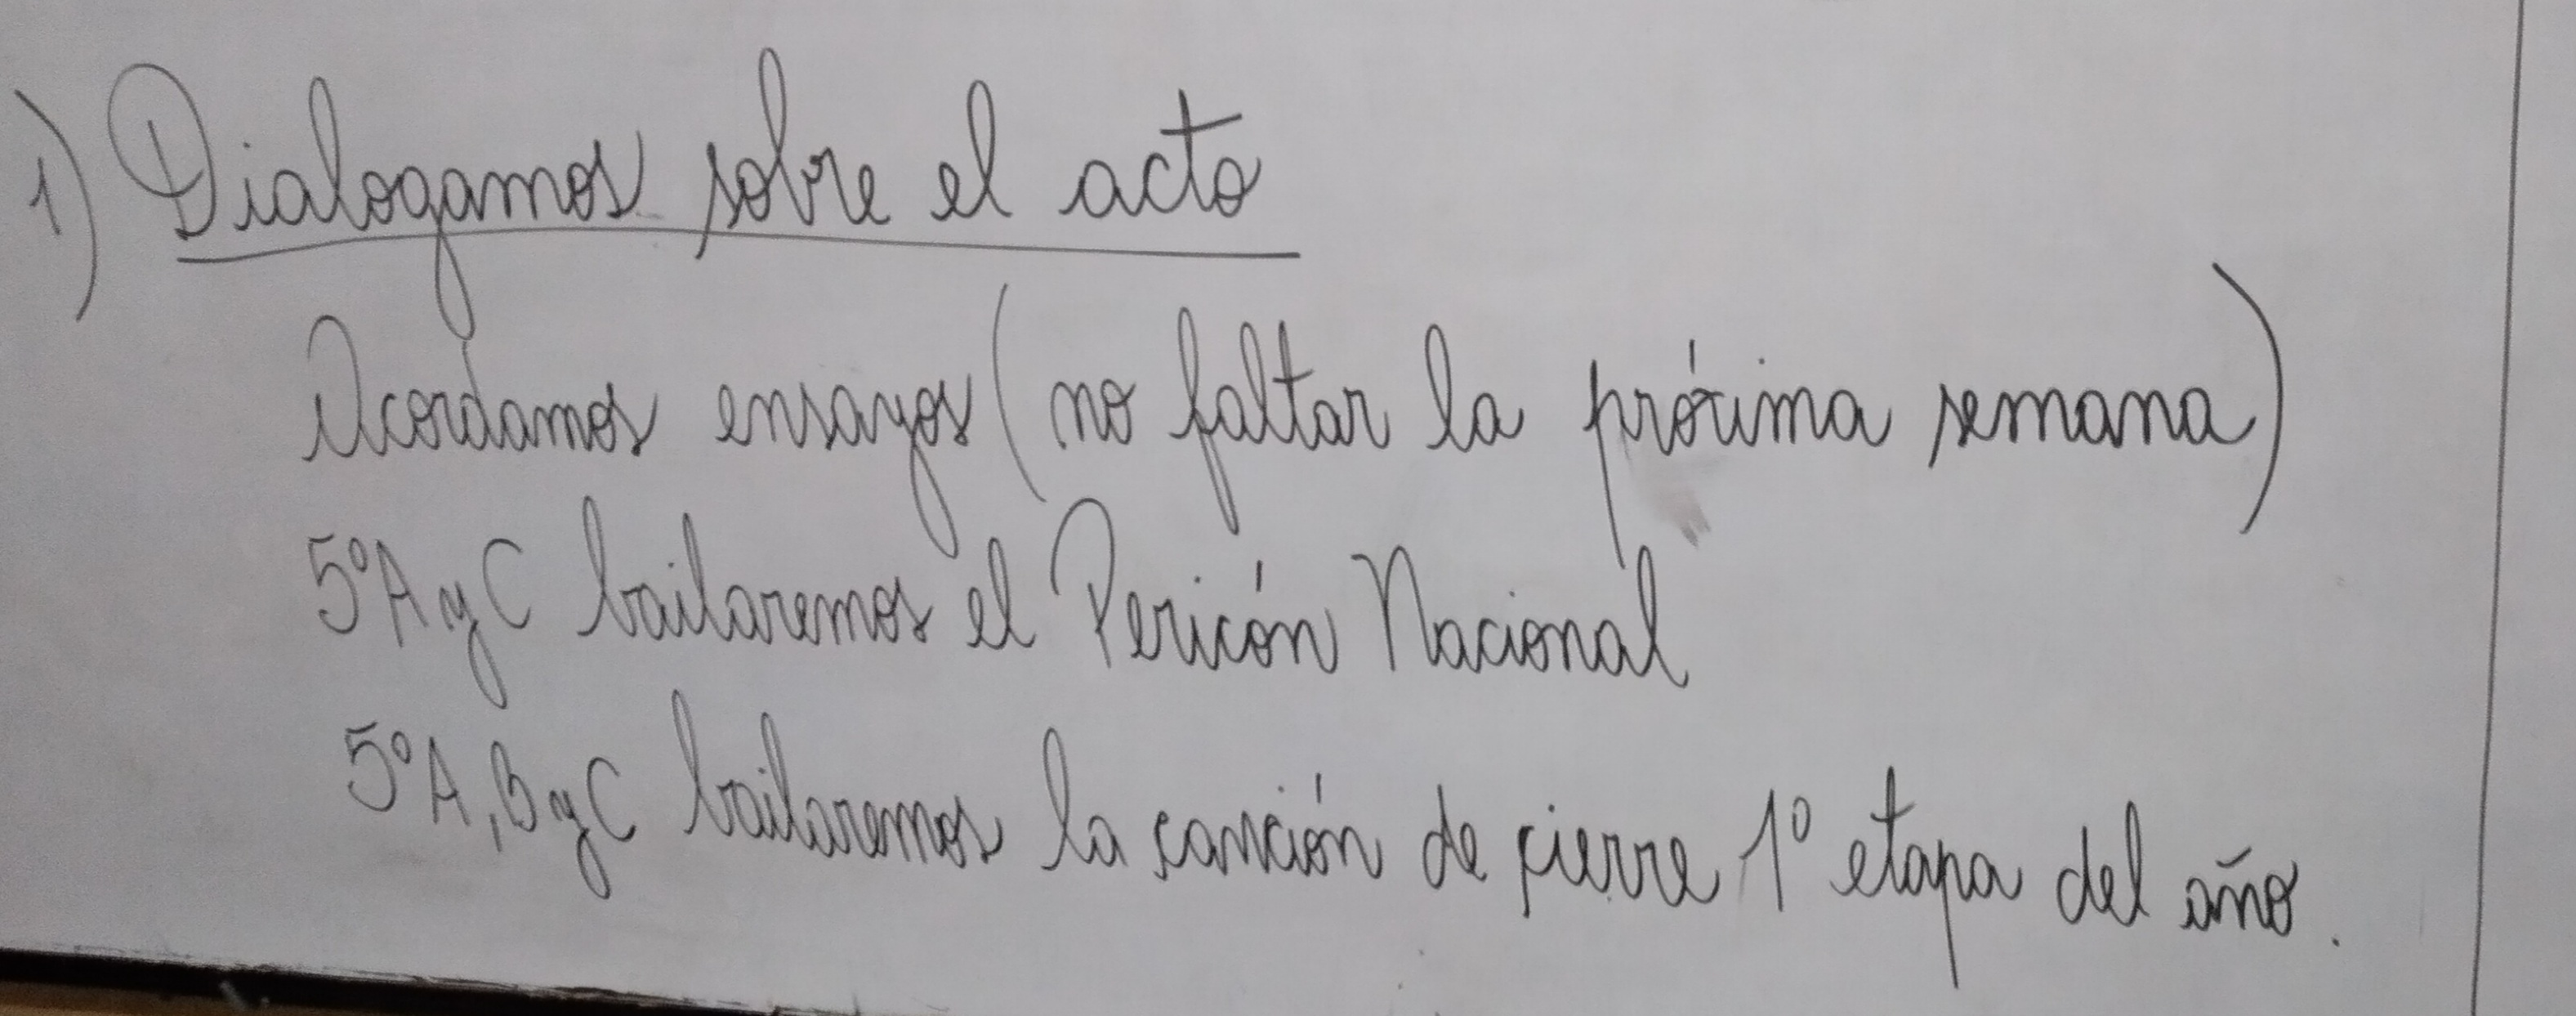 1) Dialogamos sobre el acto
Acordamos ensayos (no faltar la próxima semana)
5°A y C bailaremos el Pericón Nacional
5°A, B y C bailaremos la canción de cierre 1° etapa del año.